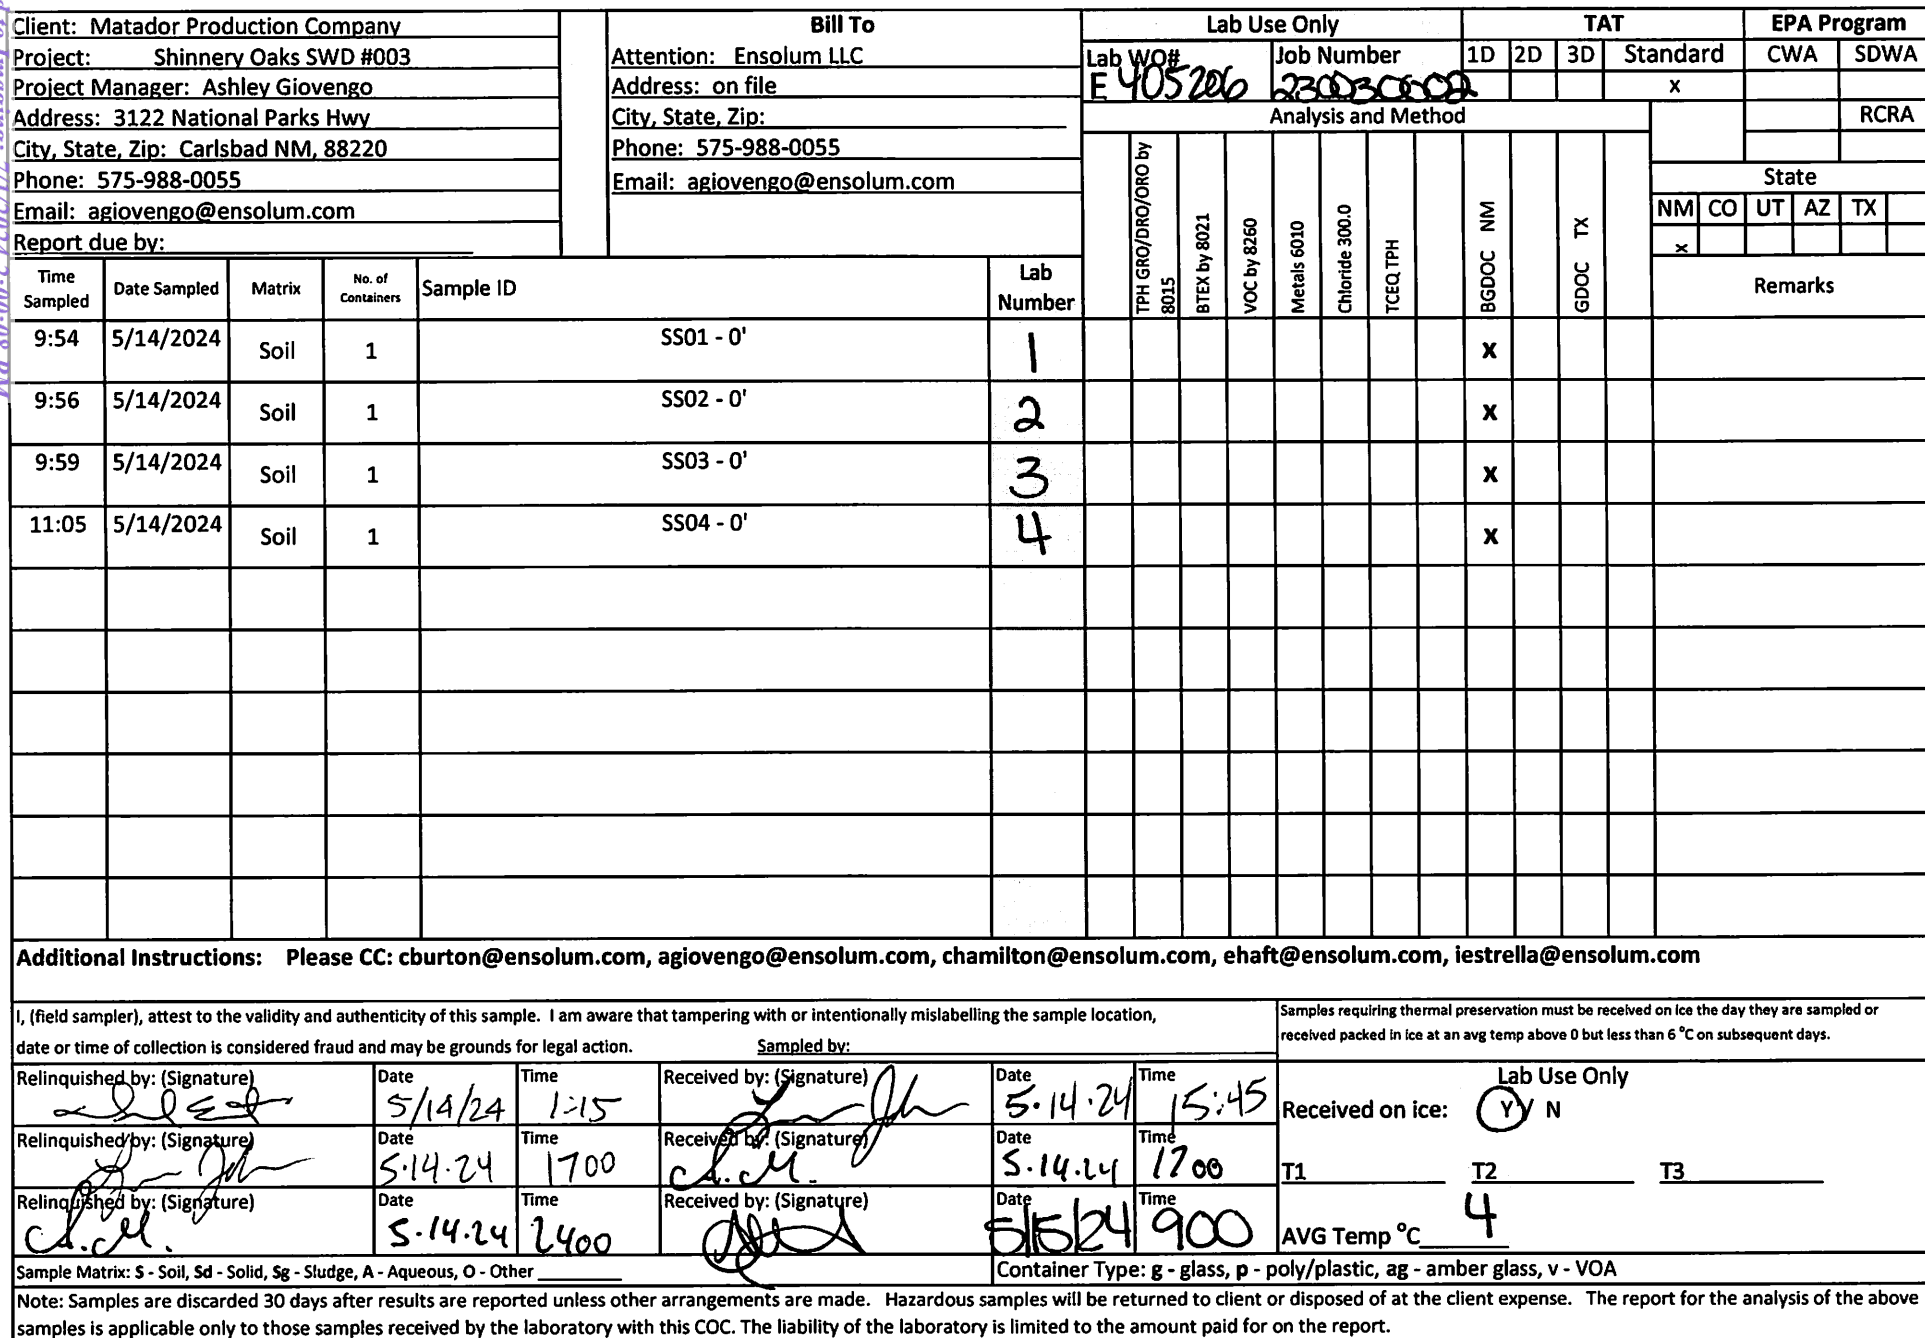 Client: Matador Production Company
Project: Shinnery Oaks SWD #003
Project Manager: Ashley Giovengo
Address: 3122 National Parks Hwy
City, State, Zip: Carlsbad NM, 88220
Phone: 575-988-0055
Email: agiovengo@ensolum.com
Report due by:
Bill To
Attention: Ensolum LLC
Address: on file
City, State, Zip:
Phone: 575-988-0055
Email: agiovengo@ensolum.com
Lab Use Only
Lab WO# Job Number
E405206
TAT
1D 2D 3D Standard
x
EPA Program
CWA SDWA
RCRA
Analysis and Method
State
NM CO UT AZ TX
x
Time Sampled Date Sampled Matrix No. of Containers Sample ID Lab Number TPH GRO/DRO/ORO by 8015 BTEX by 8021 VOC by 8260 Metals 6010 Chloride 300.0 TCEQ TPH BGDOC NM GDOC TX Remarks
9:54 5/14/2024 Soil 1 SS01 - 0' 1 X
9:56 5/14/2024 Soil 1 SS02 - 0' 2 X
9:59 5/14/2024 Soil 1 SS03 - 0' 3 X
11:05 5/14/2024 Soil 1 SS04 - 0' 4 X
Additional Instructions: Please CC: cburton@ensolum.com, agiovengo@ensolum.com, chamilton@ensolum.com, ehaft@ensolum.com, iestrella@ensolum.com
I, (field sampler), attest to the validity and authenticity of this sample. I am aware that tampering with or intentionally mislabelling the sample location,
date or time of collection is considered fraud and may be grounds for legal action. Sampled by:
Samples requiring thermal preservation must be received on ice the day they are sampled or
received packed in ice at an avg temp above 0 but less than 6 °C on subsequent days.
Relinquished by: (Signature) Date 5/14/24 Time 1:15 Received by: (Signature) Date 5.14.24 Time 15:45
Relinquished by: (Signature) Date 5.14.24 Time 1700 Received by: (Signature) A.M. Date 5.14.24 Time 1700
Relinquished by: (Signature) A.M. Date 5.14.24 Time 2400 Received by: (Signature) Date 5/15/24 Time 900
Lab Use Only
Received on ice: Y / N
T1 T2 T3
AVG Temp °C 4
Sample Matrix: S - Soil, Sd - Solid, Sg - Sludge, A - Aqueous, O - Other
Container Type: g - glass, p - poly/plastic, ag - amber glass, v - VOA
Note: Samples are discarded 30 days after results are reported unless other arrangements are made. Hazardous samples will be returned to client or disposed of at the client expense. The report for the analysis of the above
samples is applicable only to those samples received by the laboratory with this COC. The liability of the laboratory is limited to the amount paid for on the report.